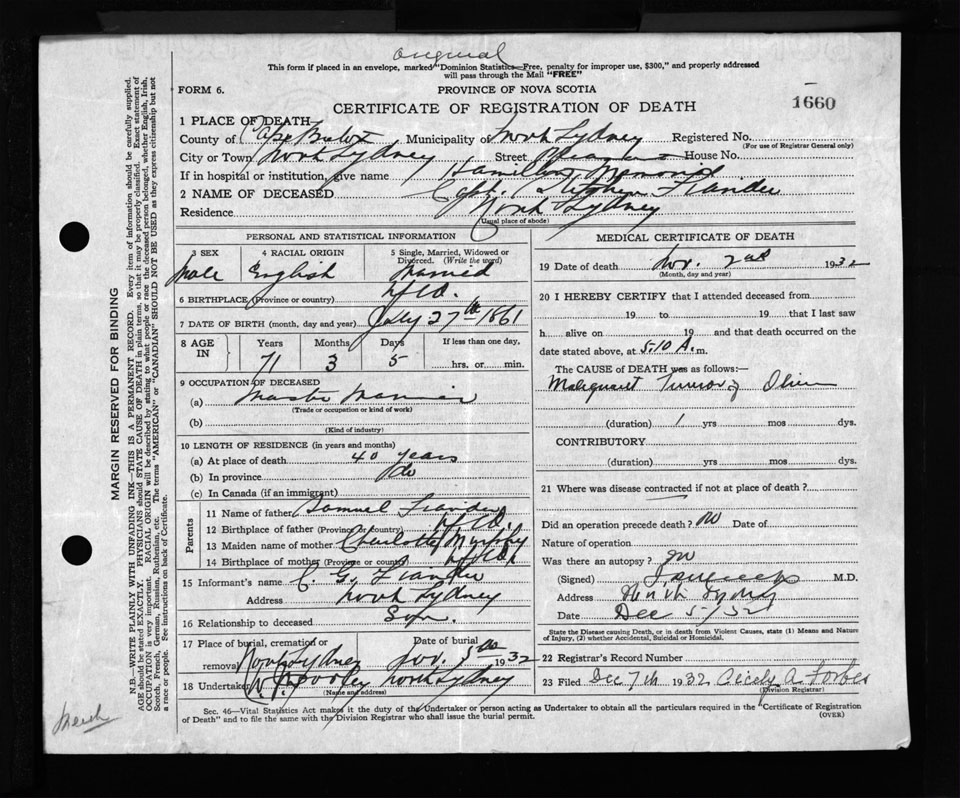 Original
This form if placed in an envelope, marked "Dominion Statistics—Free, penalty for improper use, $300," and properly addressed
will pass through the Mail "FREE"
FORM 6.
PROVINCE OF NOVA SCOTIA
CERTIFICATE OF REGISTRATION OF DEATH
1660
1 PLACE OF DEATH
County of Cape Breton Municipality of North Sydney Registered No.
(For use of Registrar General only)
City or Town North Sydney Street House No.
If in hospital or institution, give name Hamilton Memorial
2 NAME OF DECEASED Capt. Stephen Fiander
Residence North Sydney
(Usual place of abode)
PERSONAL AND STATISTICAL INFORMATION
3 SEX Male
4 RACIAL ORIGIN English
5 Single, Married, Widowed or Divorced. (Write the word) Married
6 BIRTHPLACE (Province or country) Nfld.
7 DATE OF BIRTH (month, day and year) July 27th 1861
8 AGE IN Years 71 Months 3 Days 5 If less than one day, hrs. or min.
9 OCCUPATION OF DECEASED
(a) Master Mariner
(Trade or occupation or kind of work)
(b)
(Kind of industry)
10 LENGTH OF RESIDENCE (in years and months)
(a) At place of death 40 years
(b) In province do
(c) In Canada (if an immigrant)
Parents
11 Name of father Samuel Fiander
12 Birthplace of father (Province or country) Nfld.
13 Maiden name of mother Charlotte Murphy
14 Birthplace of mother (Province or country) Nfld.
15 Informant's name C. G. Fiander
Address North Sydney
16 Relationship to deceased Son.
17 Place of burial, cremation or removal North Sydney Date of burial Nov. 5th 1932
18 Undertaker North Sydney
(Name and address)
MEDICAL CERTIFICATE OF DEATH
19 Date of death Nov. 2nd 1932
(Month, day and year)
20 I HEREBY CERTIFY that I attended deceased from
19 to 19 that I last saw
h alive on 19 and that death occurred on the
date stated above, at 5.10 A. m.
The CAUSE OF DEATH was as follows:—
Malignant Tumor of
(duration) 1 yrs mos dys.
CONTRIBUTORY
(duration) yrs mos dys.
21 Where was disease contracted if not at place of death?
Did an operation precede death? no Date of
Nature of operation
Was there an autopsy? no
(Signed) M.D.
Address North Sydney
Date Dec 5/32
State the Disease causing Death, or in death from Violent Causes, state (1) Means and Nature
of Injury, (2) whether Accidental, Suicidal or Homicidal.
22 Registrar's Record Number
23 Filed Dec 7th 1932 Cecily A. Forbes
(Division Registrar)
Sec. 46—Vital Statistics Act makes it the duty of the Undertaker or person acting as Undertaker to obtain all the particulars required in the "Certificate of Registration
of Death" and to file the same with the Division Registrar who shall issue the burial permit.
(OVER)
MARGIN RESERVED FOR BINDING
N.B.—WRITE PLAINLY WITH UNFADING INK—THIS IS A PERMANENT RECORD. Every item of information should be carefully supplied.
AGE should be stated EXACTLY. PHYSICIANS should STATE CAUSE OF DEATH in plain terms, so that it may be properly classified. Exact statement of
OCCUPATION is very important. RACIAL ORIGIN will be described by stating to what people or race the deceased person belonged, whether English, Irish,
Scotch, French, German, Russian, Ruthenian, etc. The terms "AMERICAN" or "CANADIAN" SHOULD NOT BE USED as they express citizenship but not
a race or people. See instructions on back of Certificate.